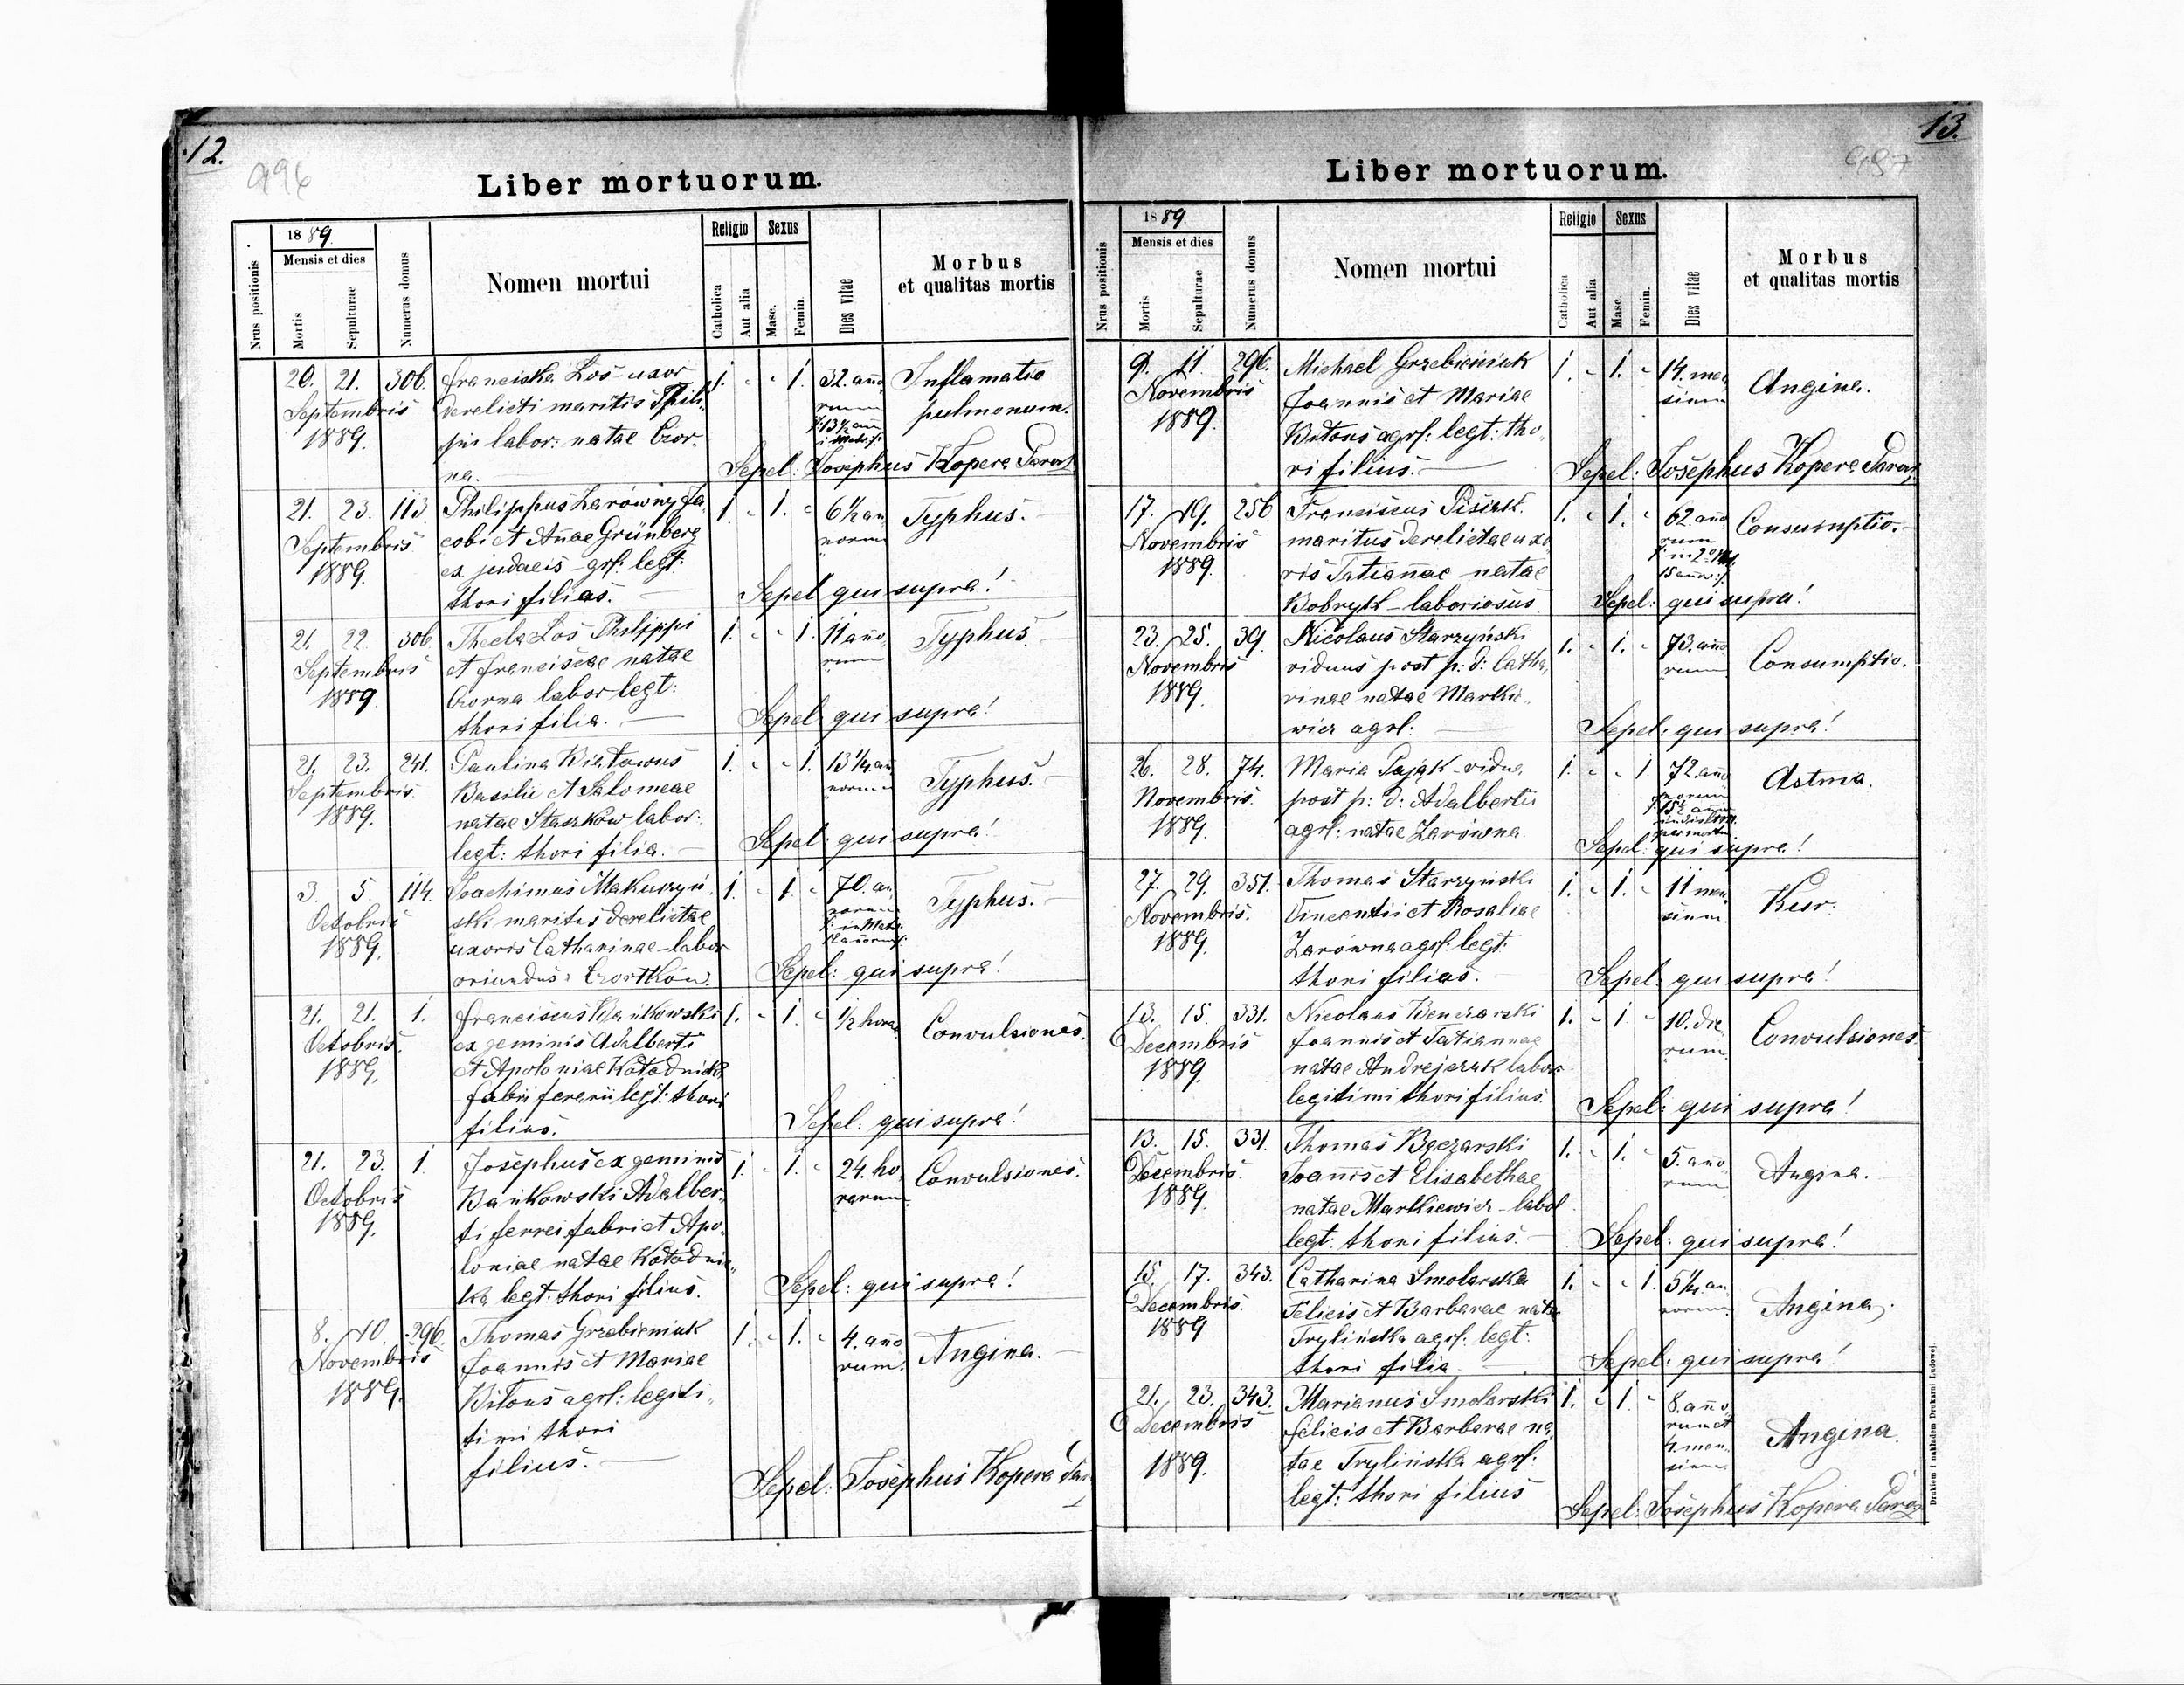 12.
996
Liber mortuorum.
Nrus positionis
1889.
Mensis et dies
Mortis
Sepulturae
Numerus domus
Nomen mortui
Religio
Catholica
Aut alia
Sexus
Masc.
Femin.
Dies vitae
Morbus
et qualitas mortis
20. 21. 306. Franciska Łoś uxor 1. " " 1. 32. anno Inflamatio
Septembris derelicti mariti Phili rum pulmonum.
1889. pi labor: natae Czor-
na.
Sepel: Josephus Kopera Paroch
21. 23. 113. Philippus Żarówny Ja 1. " 1. " 6½ an Typhus.
Septembris cobi et Annae Grünberg norum
1889. ex judaeis - grl: legt:
thori filius. Sepel qui supra!
21. 22. 306 Thecla Łoś Philippi 1. " " 1. 11 anno Typhus
Septembris et Franciscae natae rum
1889 Czorna labor legt:
thori filia. Sepel qui supra!
21. 23. 241. Paulina 1. " " 1. 13¼ an Typhus.
Septembris Basilii et Salomeae norum
1889. natae Staszków labor:
legt: thori filia. Sepel: qui supra!
3. 5. 114. Joachimus Makuszyń 1. " 1. " 70. an Typhus.
Octobris ski maritus derelictae norum
1889. uxoris Catharinae - labor
oriundus: Czortków. Sepel: qui supra!
21. 21. 1. Franciscus Bańkowski 1. " 1. " ½ horae Convulsiones.
Octobris. ex geminis Adalberti
1889. et Apoloniae Kołodnicka
fabri ferarii legt: thori
filius. Sepel: qui supra!
21. 23. 1. Josephus ex geminis 1. " 1. " 24. ho Convulsiones.
Octobris Bańkowski Adalber- rarum
1889. ti ferrei fabri et Apo-
loniae natae Kołodnic-
ka legt: thori filius. Sepel: qui supra!
8. 10. 296. Thomas Grzebieniuk 1. " 1. " 4. anno Angina.
Novembris Joannis et Mariae rum.
1889. Bitous agrl: legiti-
timi thori
filius.
Sepel: Josephus Kopera Par
13.
997
Liber mortuorum.
Nrus positionis
1889.
Mensis et dies
Mortis
Sepulturae
Numerus domus
Nomen mortui
Religio
Catholica
Aut alia
Sexus
Masc.
Femin.
Dies vitae
Morbus
et qualitas mortis
9. 11. 296. Michael Grzebieniuk 1. " 1. " 14. men Angina.
Novembris Joannis et Mariae sium
1889. Bitous agrl: legt: tho-
ri filius. Sepel: Josephus Kopera Paroch
17. 19. 256. Franciscus Pisiak 1. " 1. " 62. anno Consumptio.
Novembris maritus derelictae uxo rum
1889. ris Tatiannae natae
Bobryk - laboriosus. Sepel: qui supra!
23. 25. 39. Nicolaus Starzyński 1. " 1. " 73. anno Consumptio.
Novembris viduus post p: d: Catha- rum
1889. rinae natae Markie-
wicz agrl. Sepel: qui supra!
26. 28. 74. Maria Pająk - vidua 1. " " 1. 72. anno Astma.
Novembris. post p: d: Adalberti
1889. agrl: natae Żarówna. Sepel: qui supra!
27. 29. 351. Thomas Starzyński 1. " 1. " 11 men Kur.
Novembris. Vincentii et Rosaliae sium.
1889. Żarówna agrl: legt:
thori filius. Sepel: qui supra!
13. 15. 331. Nicolaus Benczarski 1. " 1. " 10. die Convulsiones.
Decembris Joannis et Tatiannae rum
1889. natae Andrejczuk labor
legitimi thori filius. Sepel: qui supra!
13. 15. 331. Thomas Bęczarski 1. " 1. " 5. anno Angina.
Decembris. Joannis et Elisabethae rum
1889. natae Markiewicz - labor
legt: thori filius. Sepel: qui supra!
15. 17. 343. Catharina Smolarska 1. " " 1. 5¼ an Angina.
Decembris. Felicis et Barbarae nata norum
1889 Trylińska agrl: legt:
thori filia Sepel: qui supra!
21. 23. 343. Marianus Smolarski 1. " 1. " 8. anno Angina.
Decembris Felicis et Barbarae na rum et
1889. tae Trylińska agrl. 4 men
legt: thori filius sium
Sepel: Josephus Kopera Paroch
Drukiem i nakładem Drukarni Ludowej.